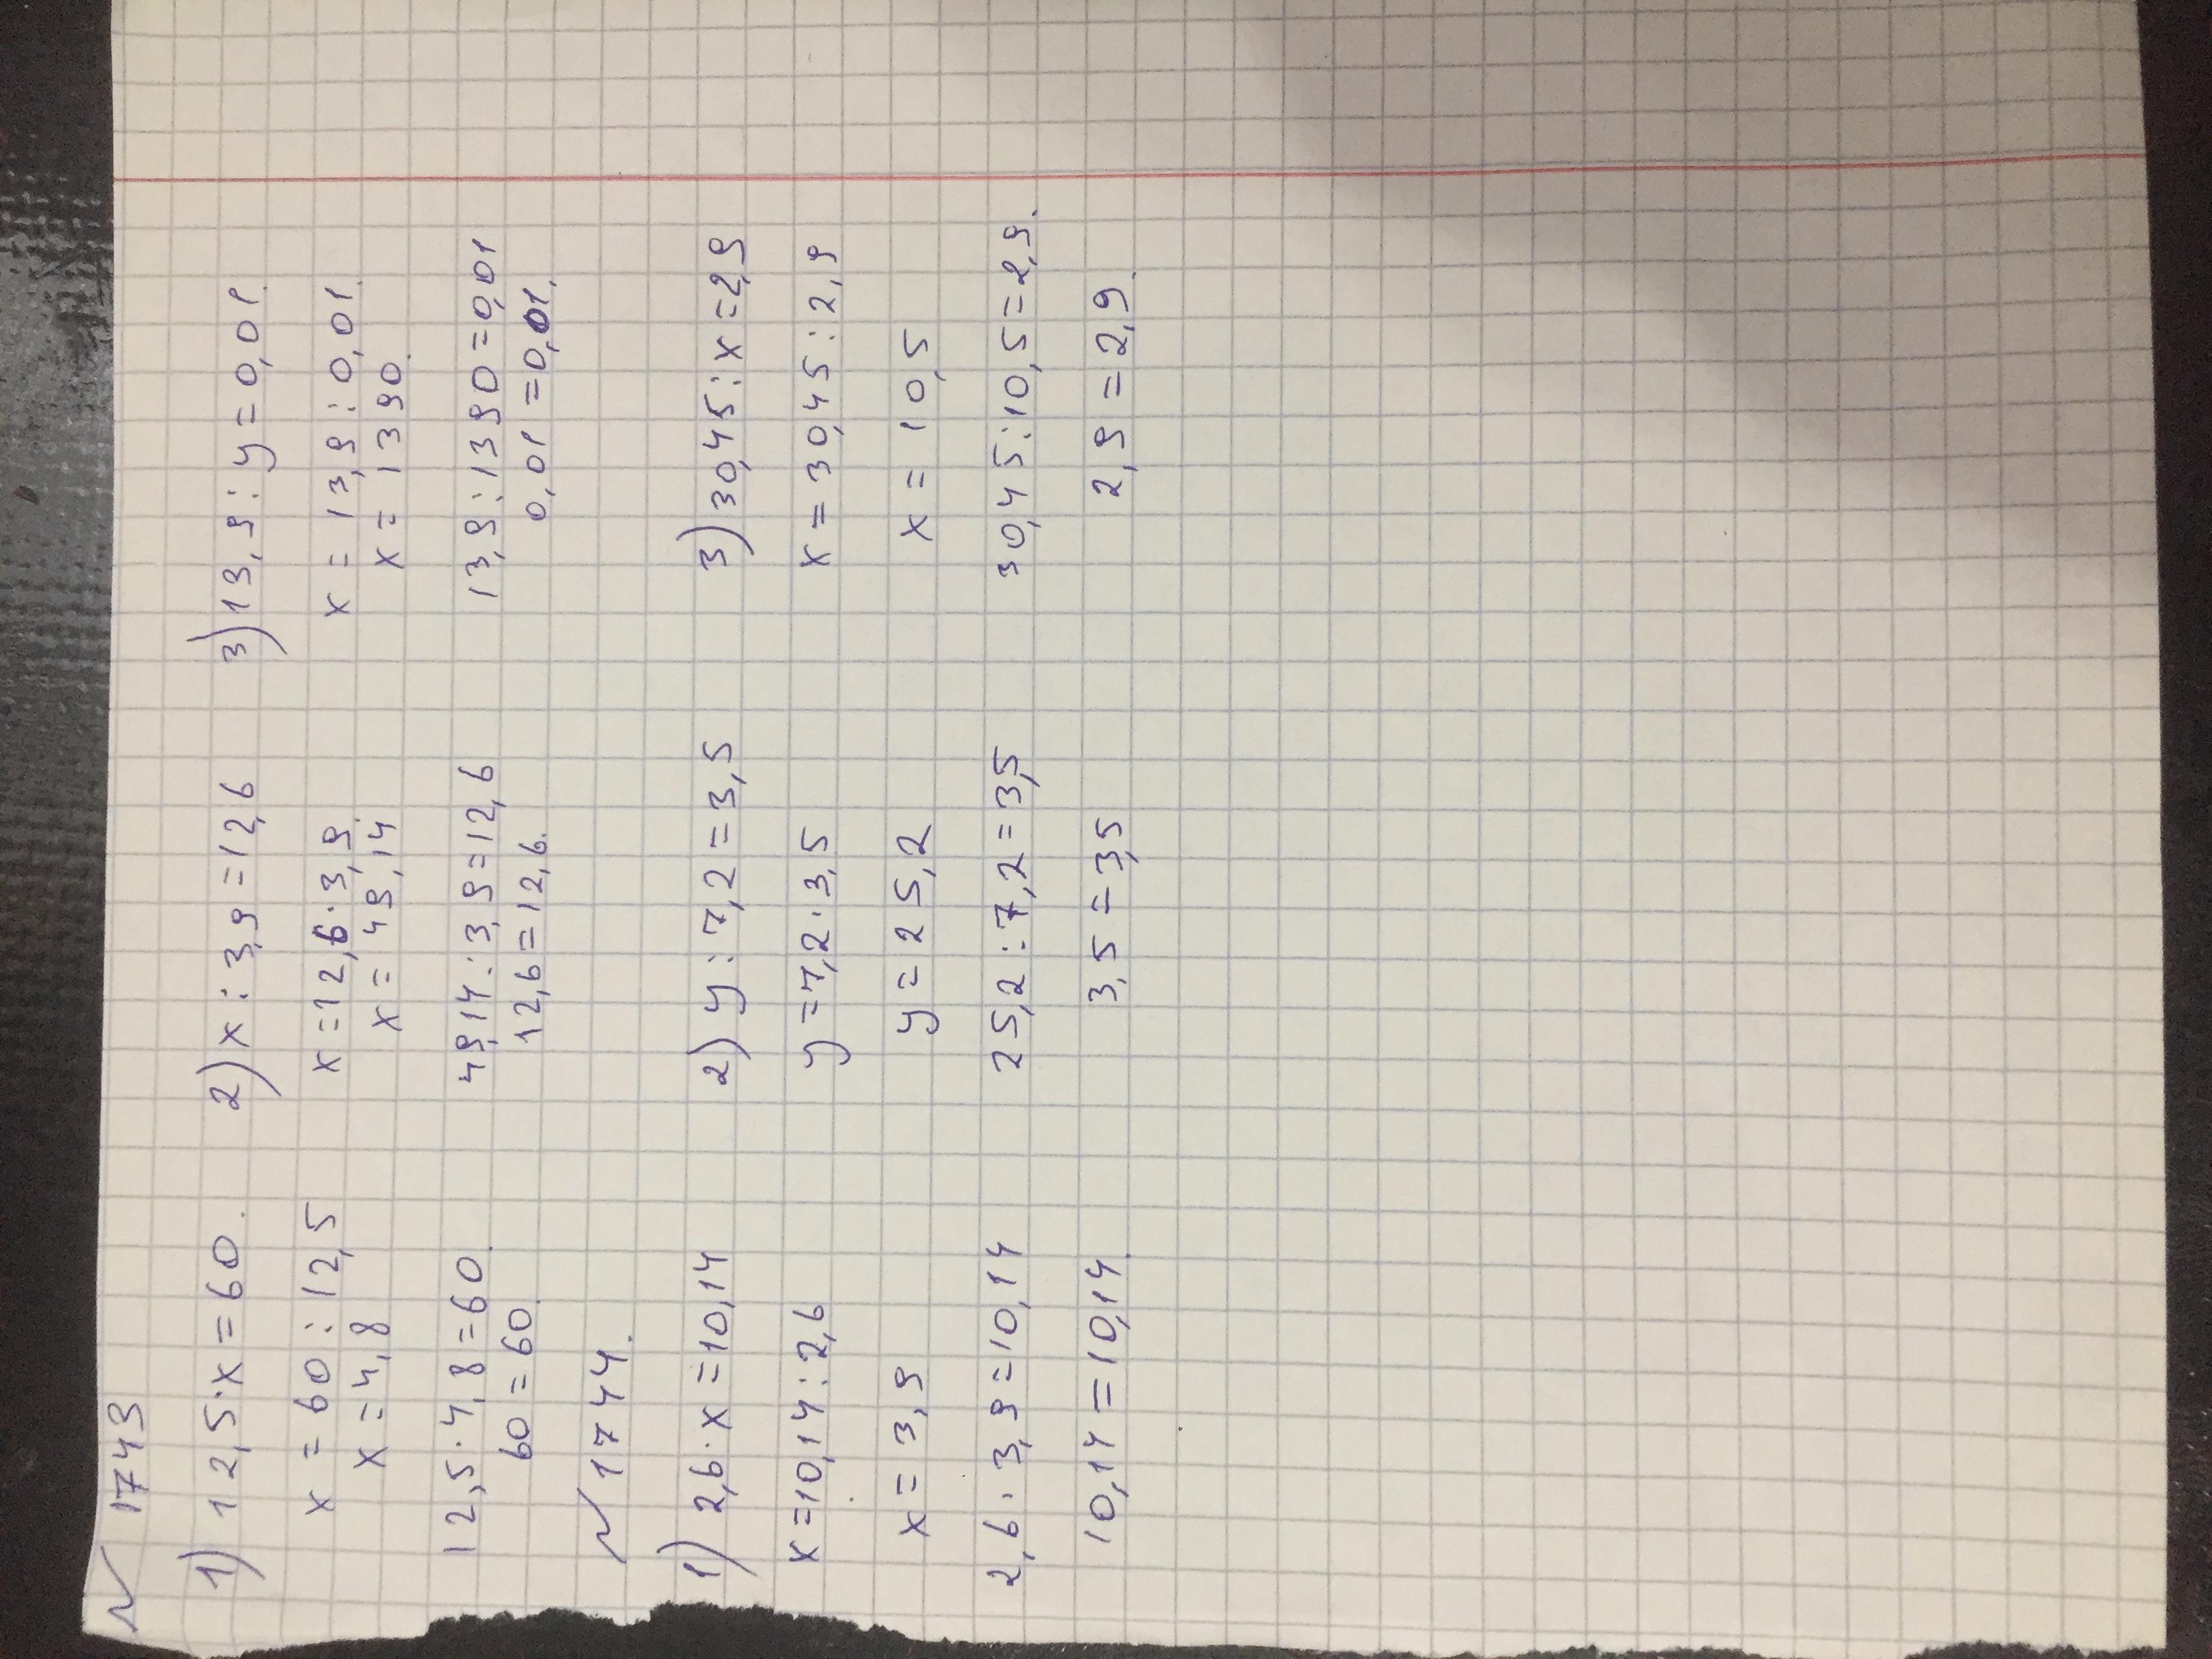 N 1743
1) 12,5·x=60.
x = 60 : 12,5
x = 4,8
12,5·4,8=60.
60=60.
2) x:3,9=12,6
x=12,6·3,9.
x=49,14
49,14:3,9=12,6
12,6=12,6.
3) 13,9:y=0,01.
x=13,9:0,01.
x=1390.
13,9:1390=0,01
0,01=0,01.
N 1744.
1) 2,6·x=10,14
x=10,14:2,6
x=3,9
2,6·3,9=10,14
10,14=10,14.
2) y:7,2=3,5
y=7,2·3,5
y=25,2
25,2:7,2=3,5
3,5=3,5
3) 30,45:x=2,9
x=30,45:2,9
x=10,5
30,45:10,5=2,9.
2,9=2,9.